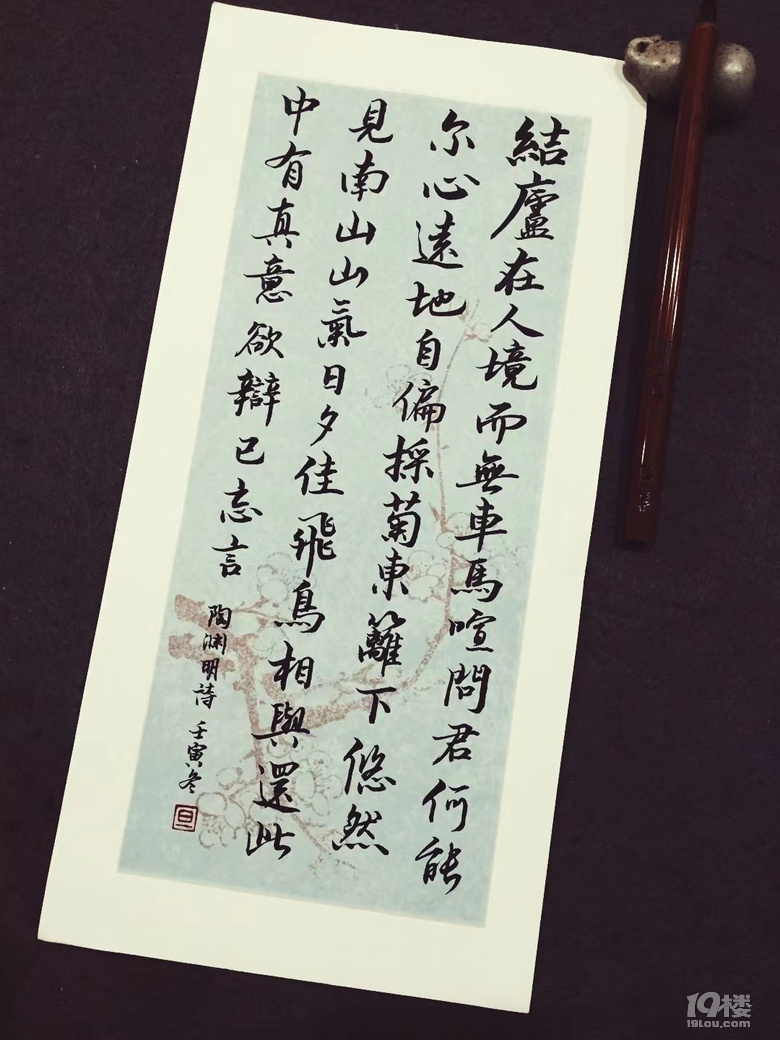 結廬在人境而無車馬喧問君何能
尔心遠地自偏採菊東籬下悠然
見南山山氣日夕佳飛鳥相與還此
中有真意欲辯已忘言
陶渊明詩 壬寅冬
旦
19楼
19lou.com